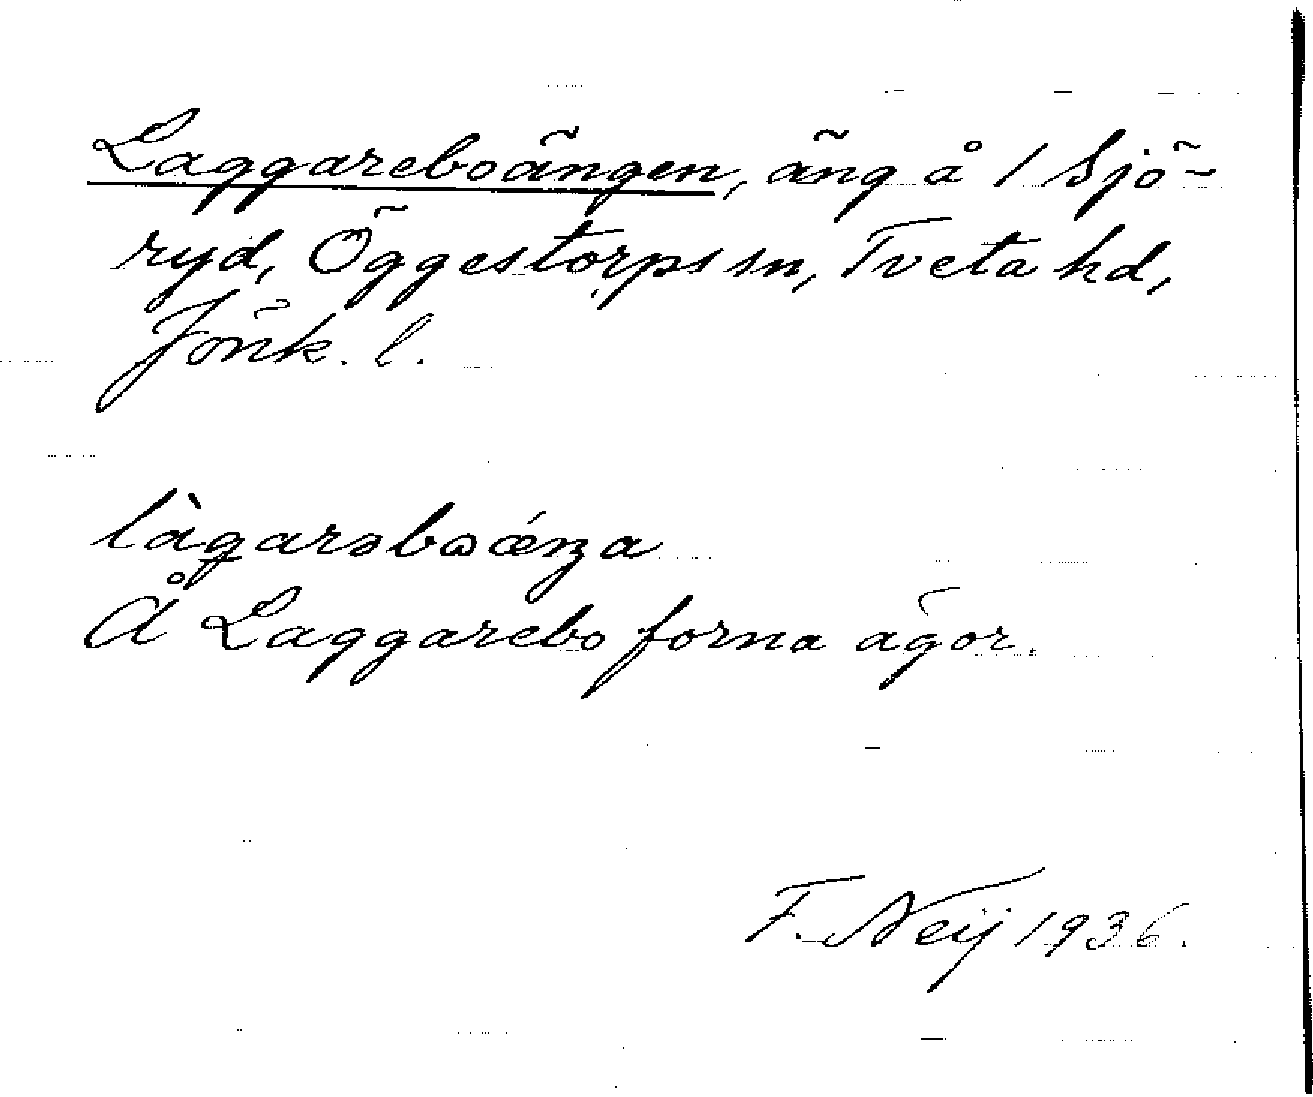 Laggareboängen, äng å 1 Sjö-
ryd, Öggestorps sn, Tveta hd,
Jönk. l.
làgarəbωǽŋa
Å Laggarebo forna ägor.
F. Neij 1936.